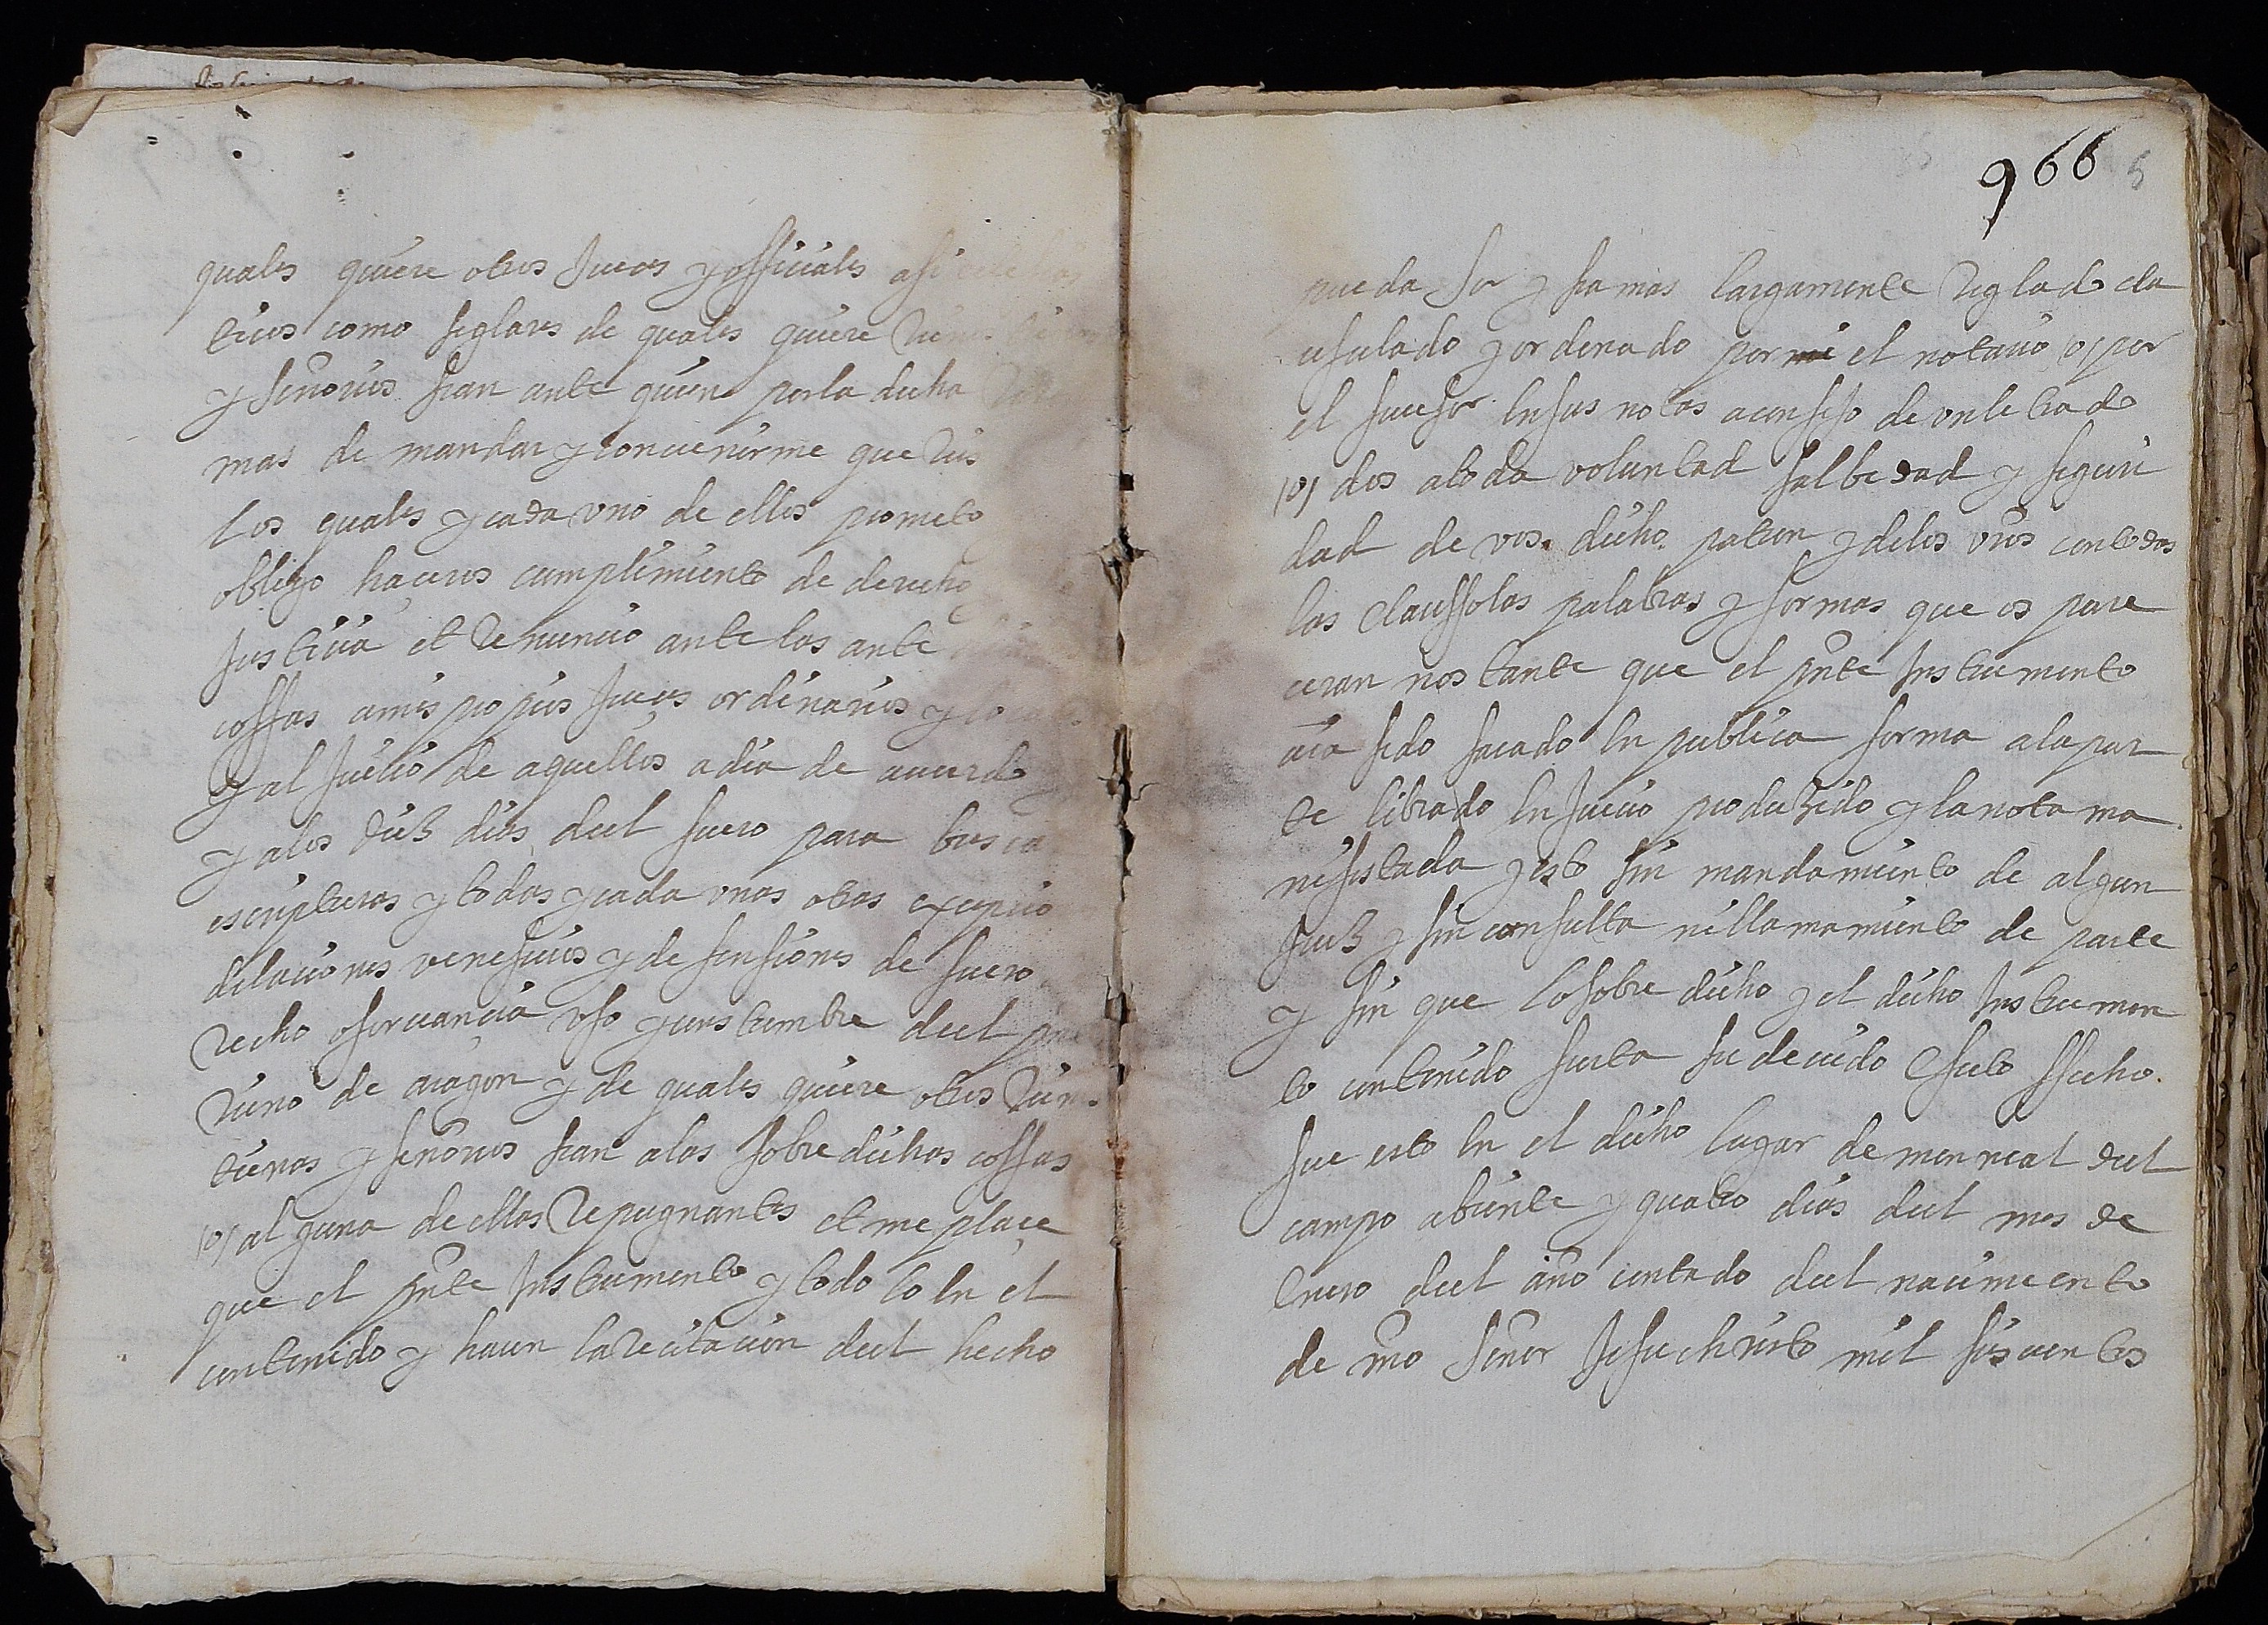 quales quiere otros Jueces y officiales asi
ticos como seglares de quales quiere
y señorios sean ante quien por la dicha
mas de mandar y convenirme que reis
los quales y cada uno de ellos prometo
obligo haceros cumplimiento de derecho
Justicia et renuncio ante las ante
cossas a mis propios Jueces ordinarios y
y al Juicio de aquellos a dia de acuerdo
y a los diez dias del fuero para busca
escripturas y todas y cada unas otras excepcio
dilaciones veneficios y defensiones de fuero
recho oseruancia uso y custumbre del
reino de aragon y de quales quiere otros
tierras y señorios sean a las sobre dichas cossas
(o) alguna de ellas repugnantes et me plaçe
que el pnte Instrumento y todo lo en el
contenido y hacen la recitacion del hecho
966
pueda ser y sea mas largamente reglado cla
usulado y ordenado por el notario o por
el sucesor en sus notas a consejo de un letrado
(o) dos a toda voluntad salbedad y seguri
dad de vos dicho patron y de los vros con todas
las claussolas palabras y formas que os pare
ceran nostante que el pnte Instrumento
aia sido sacado en publica forma a la par
te librado en Juicio produzido y la nota ma
nifestada y esto sin mandamiento de algun
Juez y sin consulta ni llamamiento de parte
y sin que lo sobre dicho y el dicho Instrumen
to contenido surta su devido efecto ffecho.
fue esto en el dicho lugar de monreal del
campo a binte y quatro dias del mes de
Enero del año contado del nacimiento
de nro Señor Jesuchristo mil seiscientos